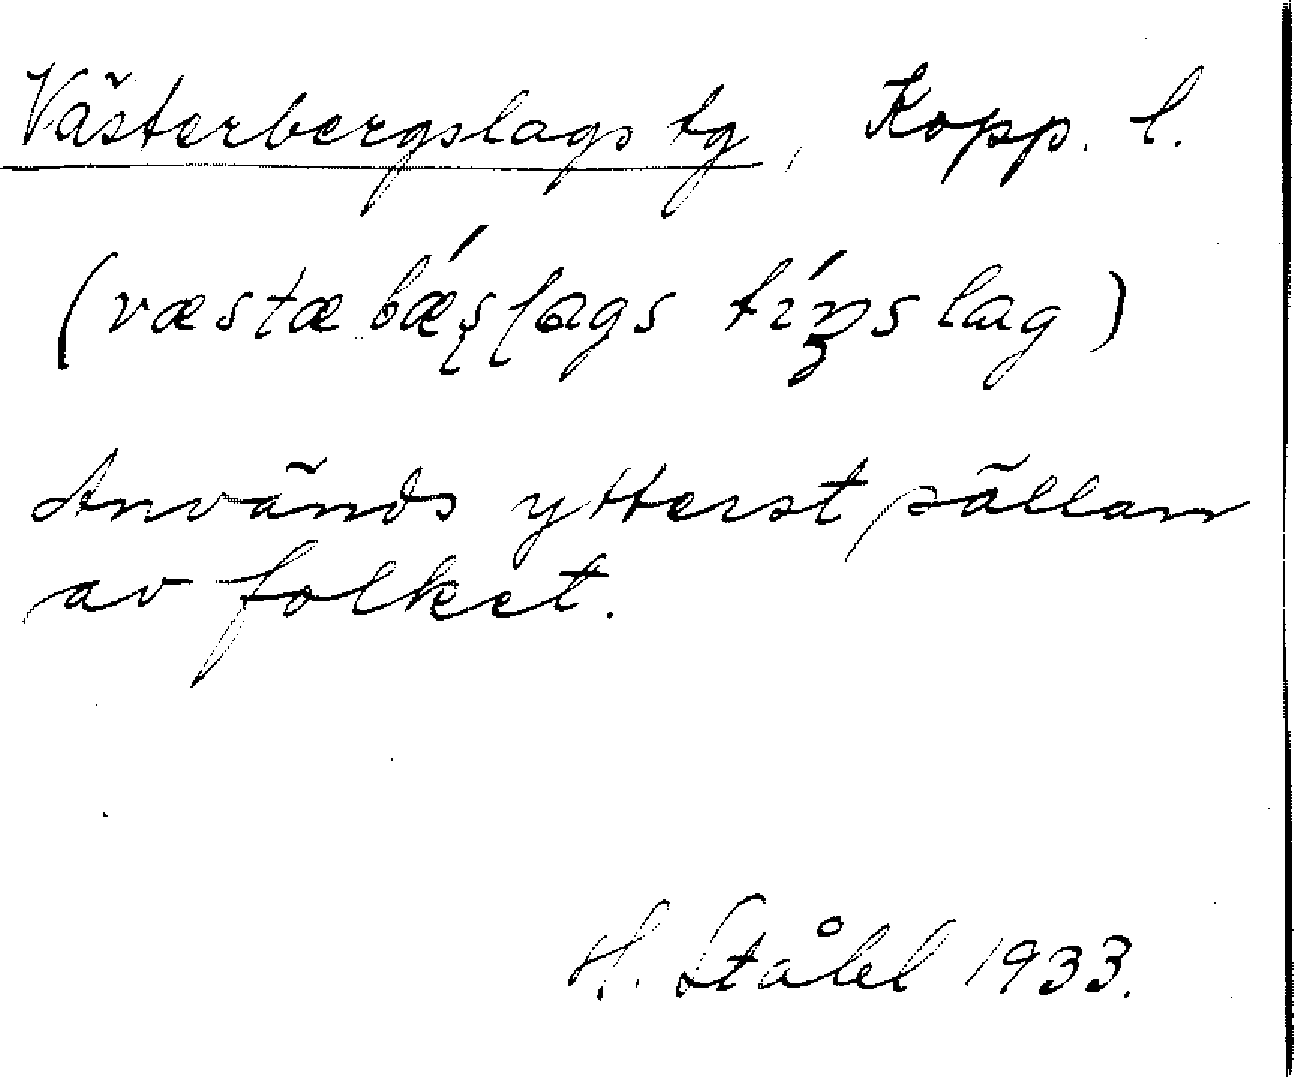 Västerbergslags tg, Kopp. l.
(væstæbǽʂɭags tíŋslag)
Används ytterst sällan
av folket.
H. Ståhl 1933.